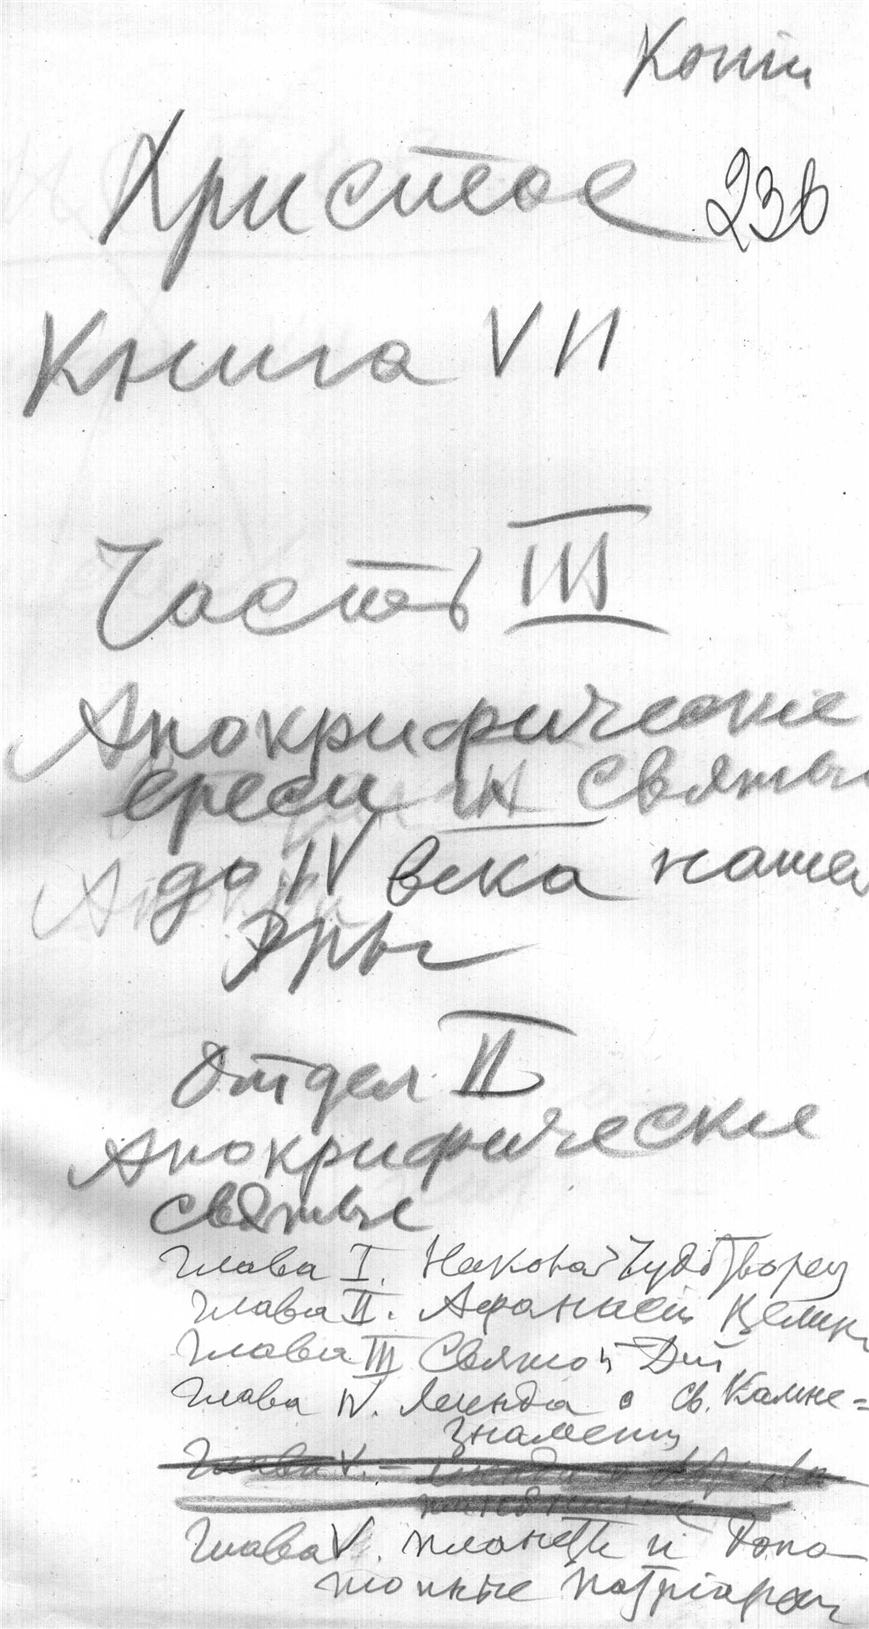 Копiи
Христос 236
Книга VII
Часть III
Апокрифические
ереси и святые
до IV века нашей
эры
Отдел II
Апокрифические
святые
Глава I. Никола Чудотворец
Глава II. Афанасий Велик
Глава III Святой Дий
Глава IV. Легенда о св. Камне=
Знамении
Глава V.
Глава V. планеты и допо
топные патрiархи